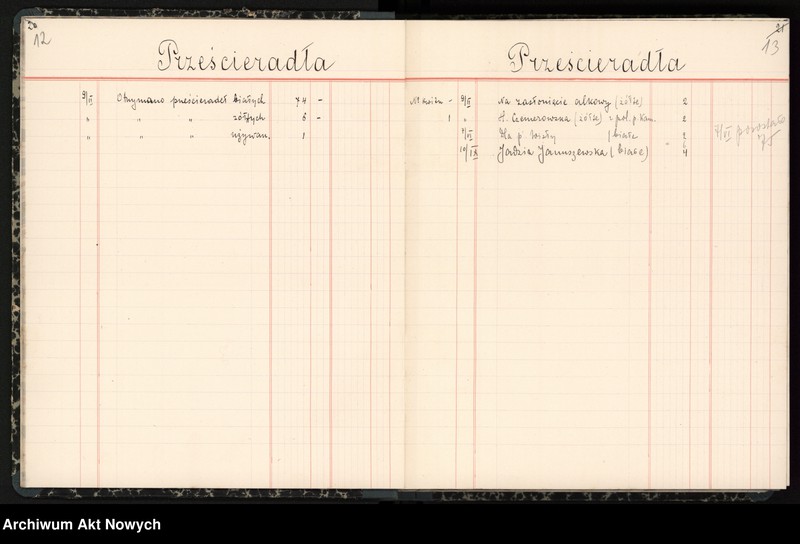 20
12
Prześcieradła
9/II Otrzymano prześcieradeł białych 74 -
" " " żółtych 6 -
" " " używan. 1
21
13
Prześcieradła
- 9/II Na zasłonięcie alkowy (żółte) 2
1 " H. (żółte) z pol. p. Kam. 2
9/VI Dla p. białe 2
10/IX Jadzia Januszewska (białe) 4
7/VI pozostało
75
Archiwum Akt Nowych